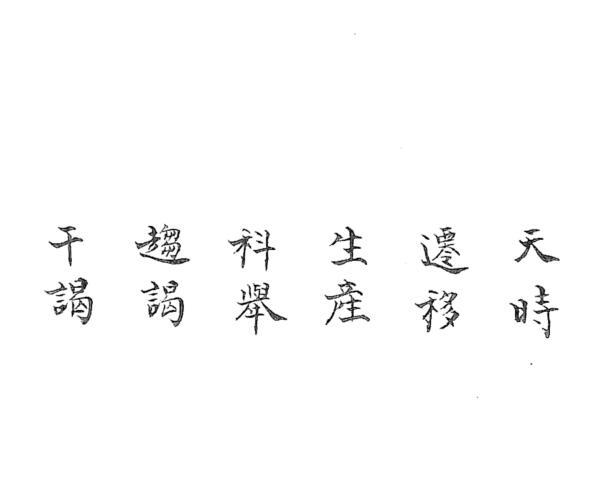 天時
遷移
生產
科舉
趨謁
干謁